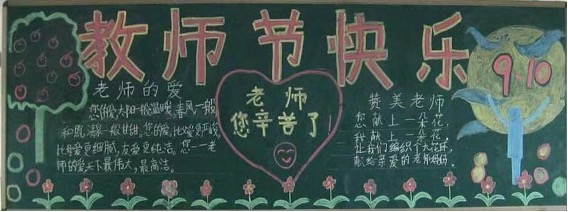 教师节快乐
9.10
老师的爱
您的爱,太阳一般温暖,春风一般
和煦,清泉一般甘甜。您的爱,比父爱更严峻,
比母爱更细腻,友爱更纯洁。您一老
师的爱天下最伟大,最高洁。
老师
您辛苦了!
赞美老师
您献上一朵花
我献上一朵花,
让我们编织个大花环,
献给亲爱的老师妈妈